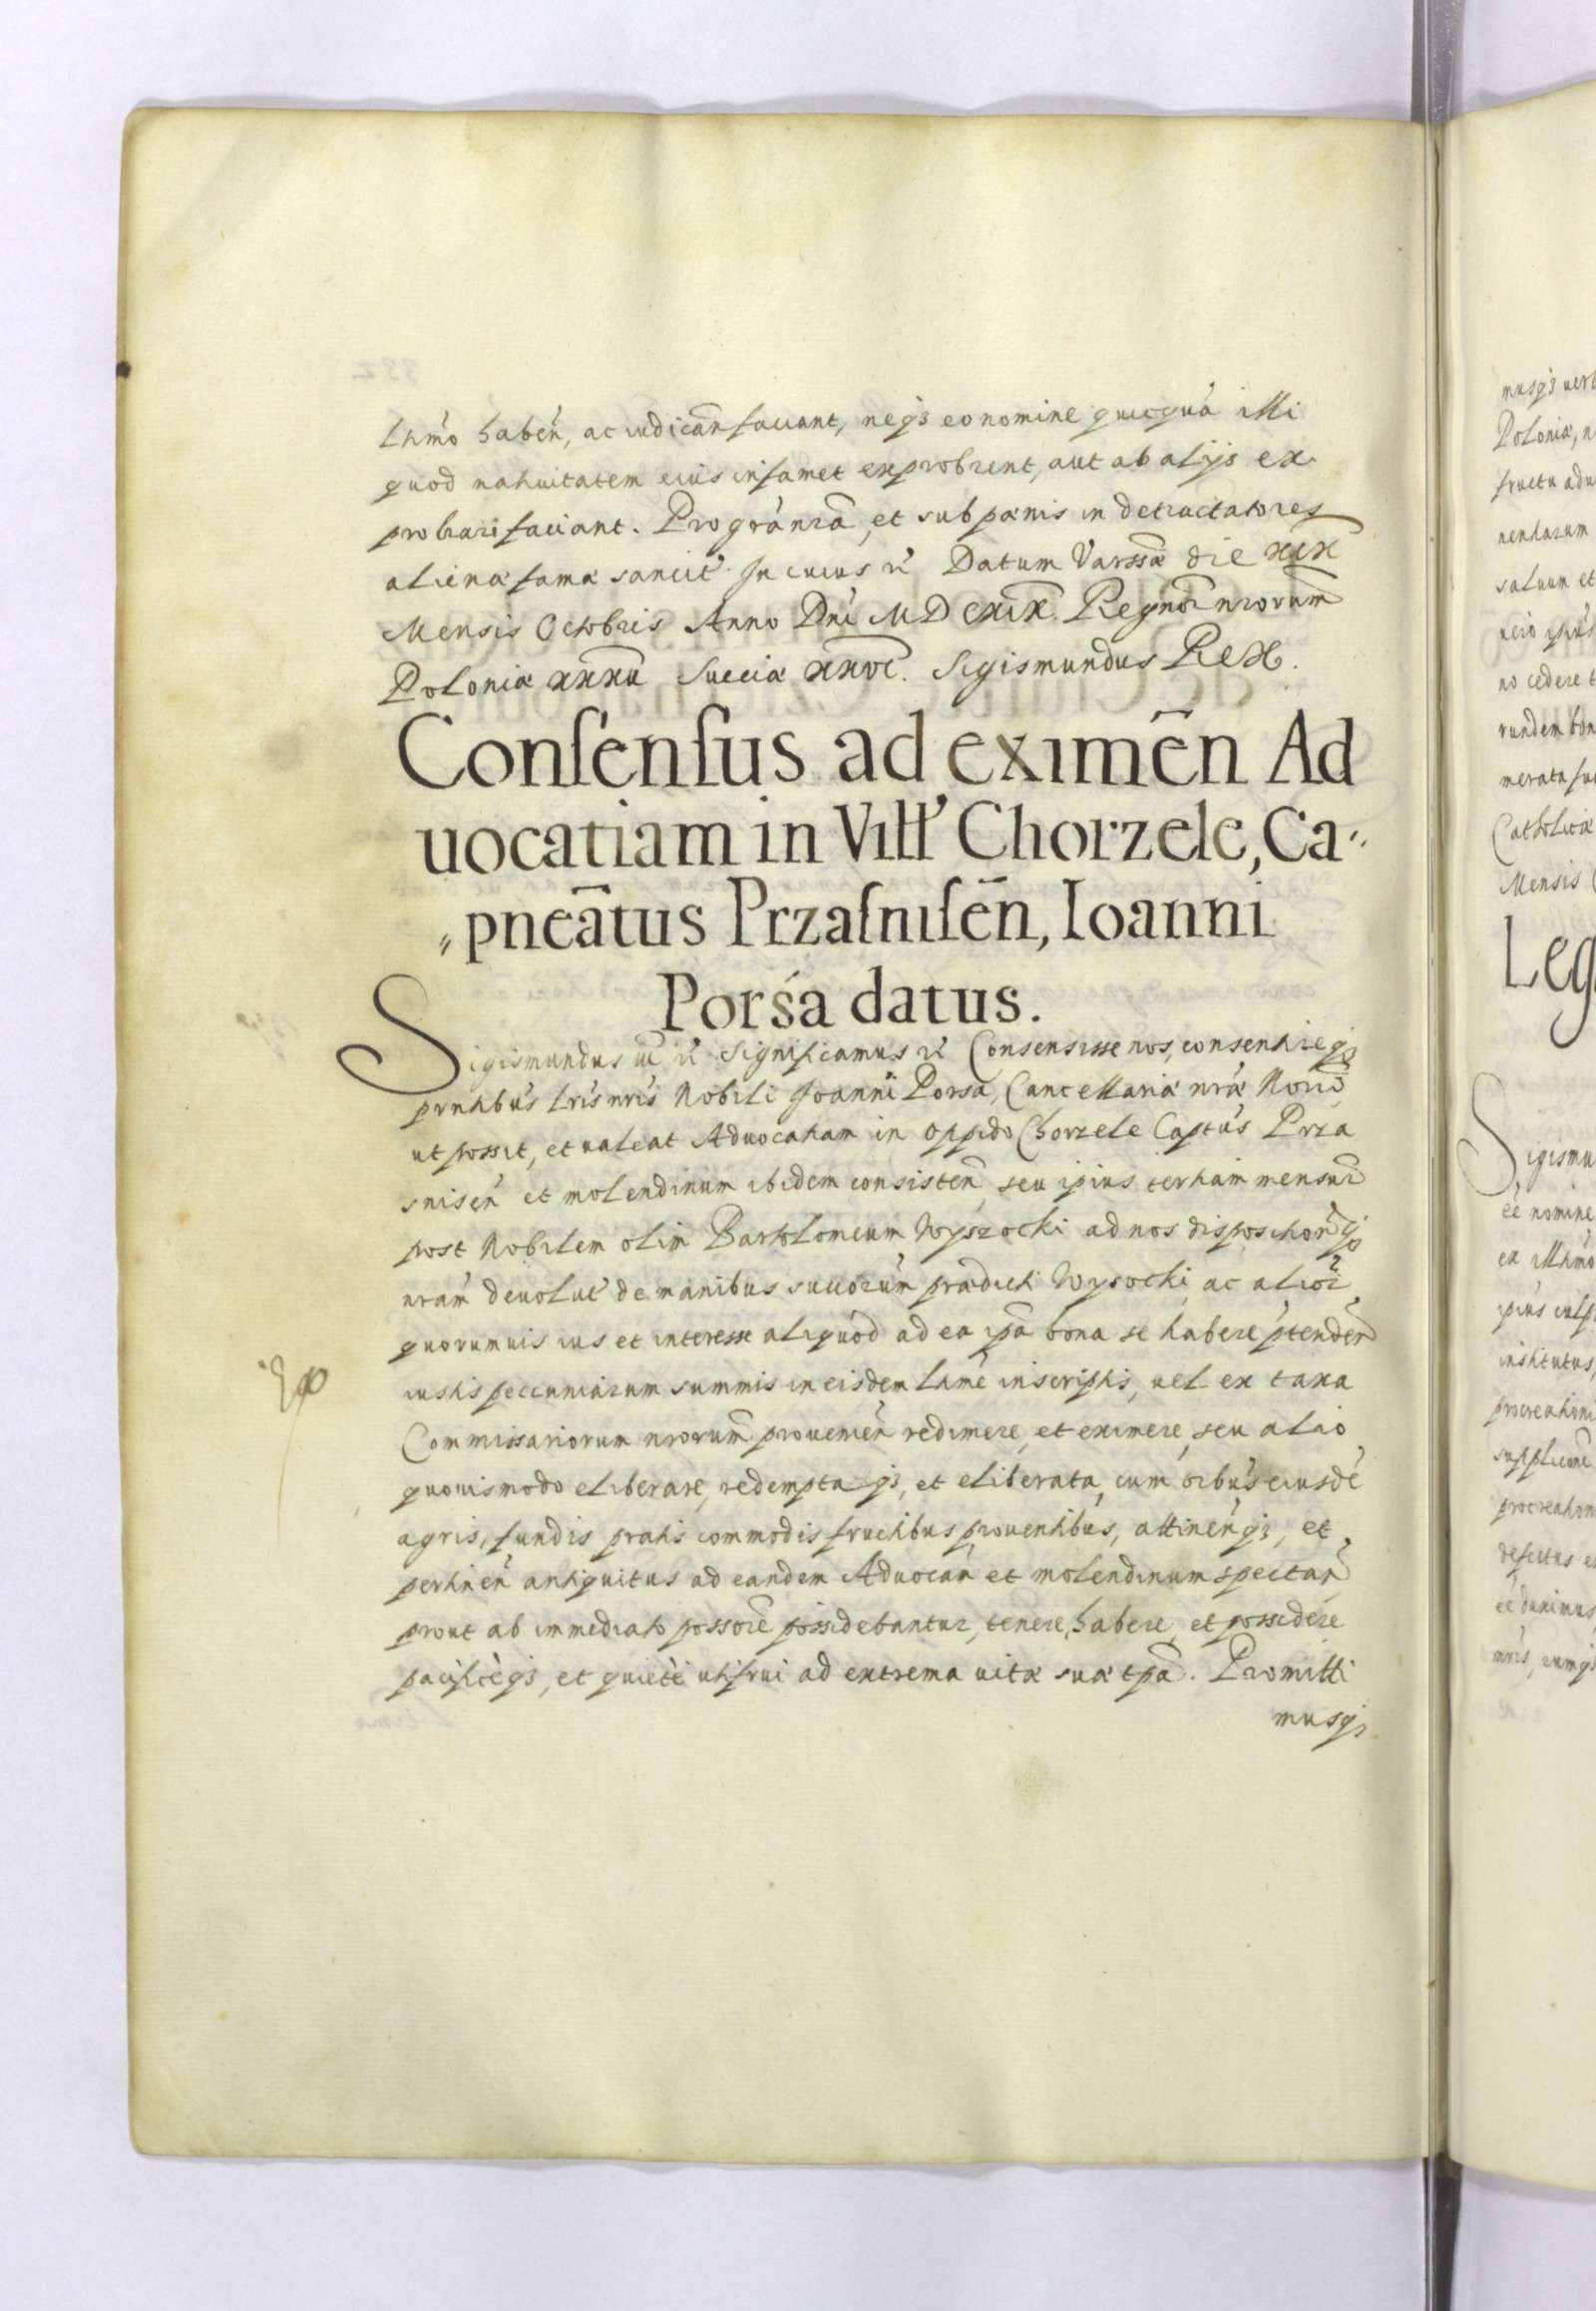 Ltimo habeñ, ac iudicañ faciant, neqз eo nomine quicquã illi
quod natiuitatem eius infamet exprobrent, aut ab alijs ex
probrari faciant. Pro gra nra, et sub pænis in detractatores
alienæ famæ sancit. In cuius rē Datum Varssæ die xıx
Mensis Octobris Anno Dni MDCXIX. Regnor nrorum
Poloniæ xxxıı Sueciæ xxvı. Sigismundus Rex.
Conſenſus ad eximēn Ad
uocatiam in Vill' Chorzele, Ca-
pneātus Przaſniſēn, Ioanni
Porśa datus.
Sigismundus ııı rē Significamus rē Consensisse nos, consentireqз
pntibus Lris nris Nobili Joanni Porsa, Cancellariæ nræ Notrio
ut possit, et ualeat Aduocatiam in oppido Chorzele Captus Prza
snisen et molendinum ibidem consisten, seu ipius tertiam mensurā
post Nobilem olim Bartolomeum Wyszocki ad nos dispositionēqз
nram deuolut de manibus succorum prædicti Wysocki, ac alior
quorumuis ius et interesse aliquod ad ea ipa bona se habere ptenden
iustis peccuniarum summis in eisdem Ltime inscriptis, uel ex taxa
Commissariorum nrorum prouenien redimere, et eximere, seu alio
quouis modo eliberare, redemptaqз, et eliberata, cum oibus eiusdē
agris, fundis pratis commodis fructibus prouentibus, attinenqз, et
pertinen antiquitus ad eandem Aduocan et molendinum spectan
prout ab immediato possore possidebantur, tenere, habere, et possidere
pacificeqз, et quiete utifrui ad extrema uitæ suæ tpa. Promitti
musqз
musqз
Poloniæ,
fructu
saluum et
no cedere
rundem
merata
Catholicæ
Mensis
Leg
Sigismu
nomine
ex
institutus,
procreationi